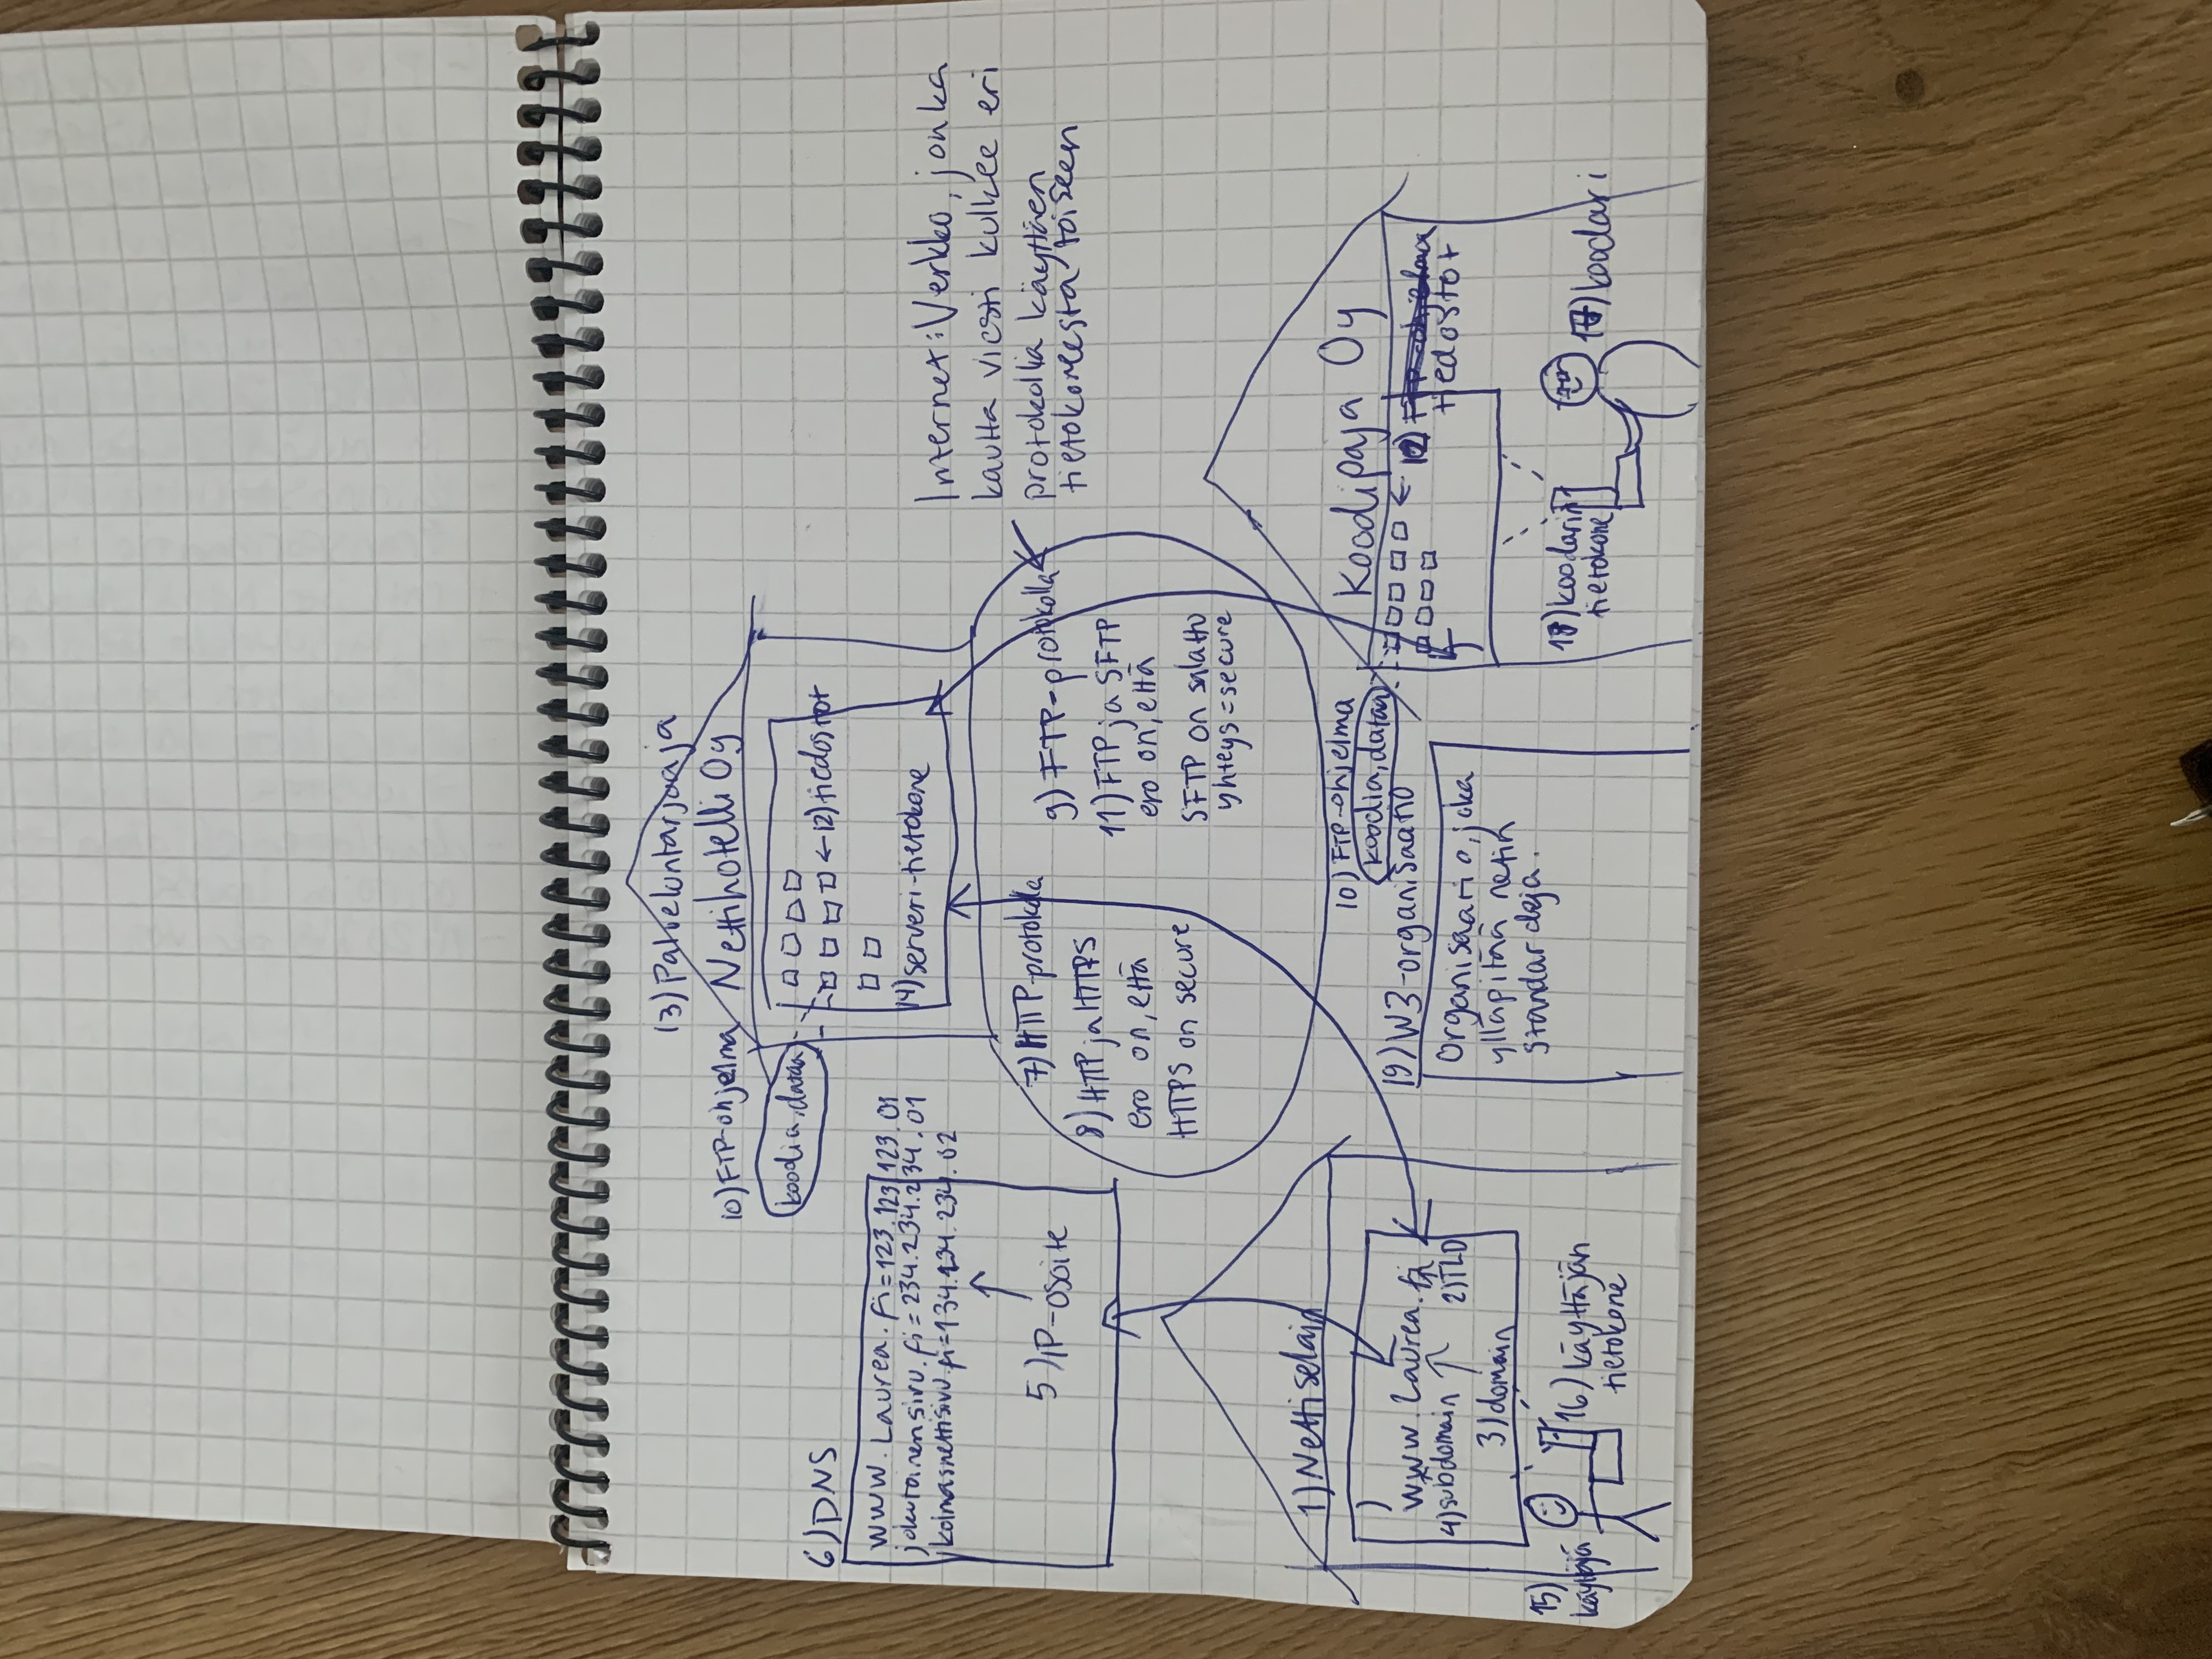 13) Palveluntarjoaja
Nettihotelli Oy
10) FTP-ohjelma
koodia, dataa
← 12) tiedostot
14) serveri-tietokone
6) DNS
www.Laurea.fi=123.123.123.01
jokutoinensivu.fi=234.234.234.01
jkolmasnettisivu.fi=134.134.234.02
5) IP-osoite
Internet: Verkko, jonka
kautta viesti kulkee eri
protokollia käyttäen
tietokoneesta toiseen
7) HTTP-protokolla
8) HTTP ja HTTPS
ero on, että
HTTPS on secure
9) FTP-protokolla
11) FTP ja SFTP
ero on, että
SFTP on salattu
yhteys = secure
1) Nettiselain
)
www.Laurea.fi
4) subdomain
2) TLD
3) domain
15)
käyttäjä
16) käyttäjän
tietokone
19) W3-organisaatio
Organisaatio, joka
ylläpitää netin
standardeja.
10) FTP-ohjelma
koodia, dataa
Koodipaja Oy
← 12) FTP-ohjelma
tiedostot
18) koodarin
tietokone
17) koodari